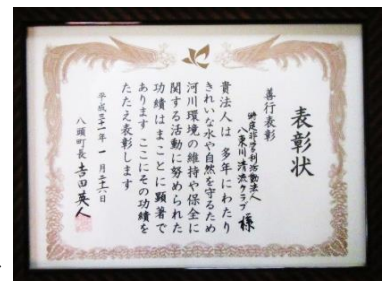 表彰状
善行表彰
特定非営利活動法人
八東川清流クラブ 様
貴法人は 多年にわたり
きれいな水や自然を守るため
河川環境の維持や保全に
関する活動に努められた
功績はまことに顕著で
あります ここにその功績を
たたえ表彰します
平成三十一年 一月二十六日
八頭町長 吉田英人